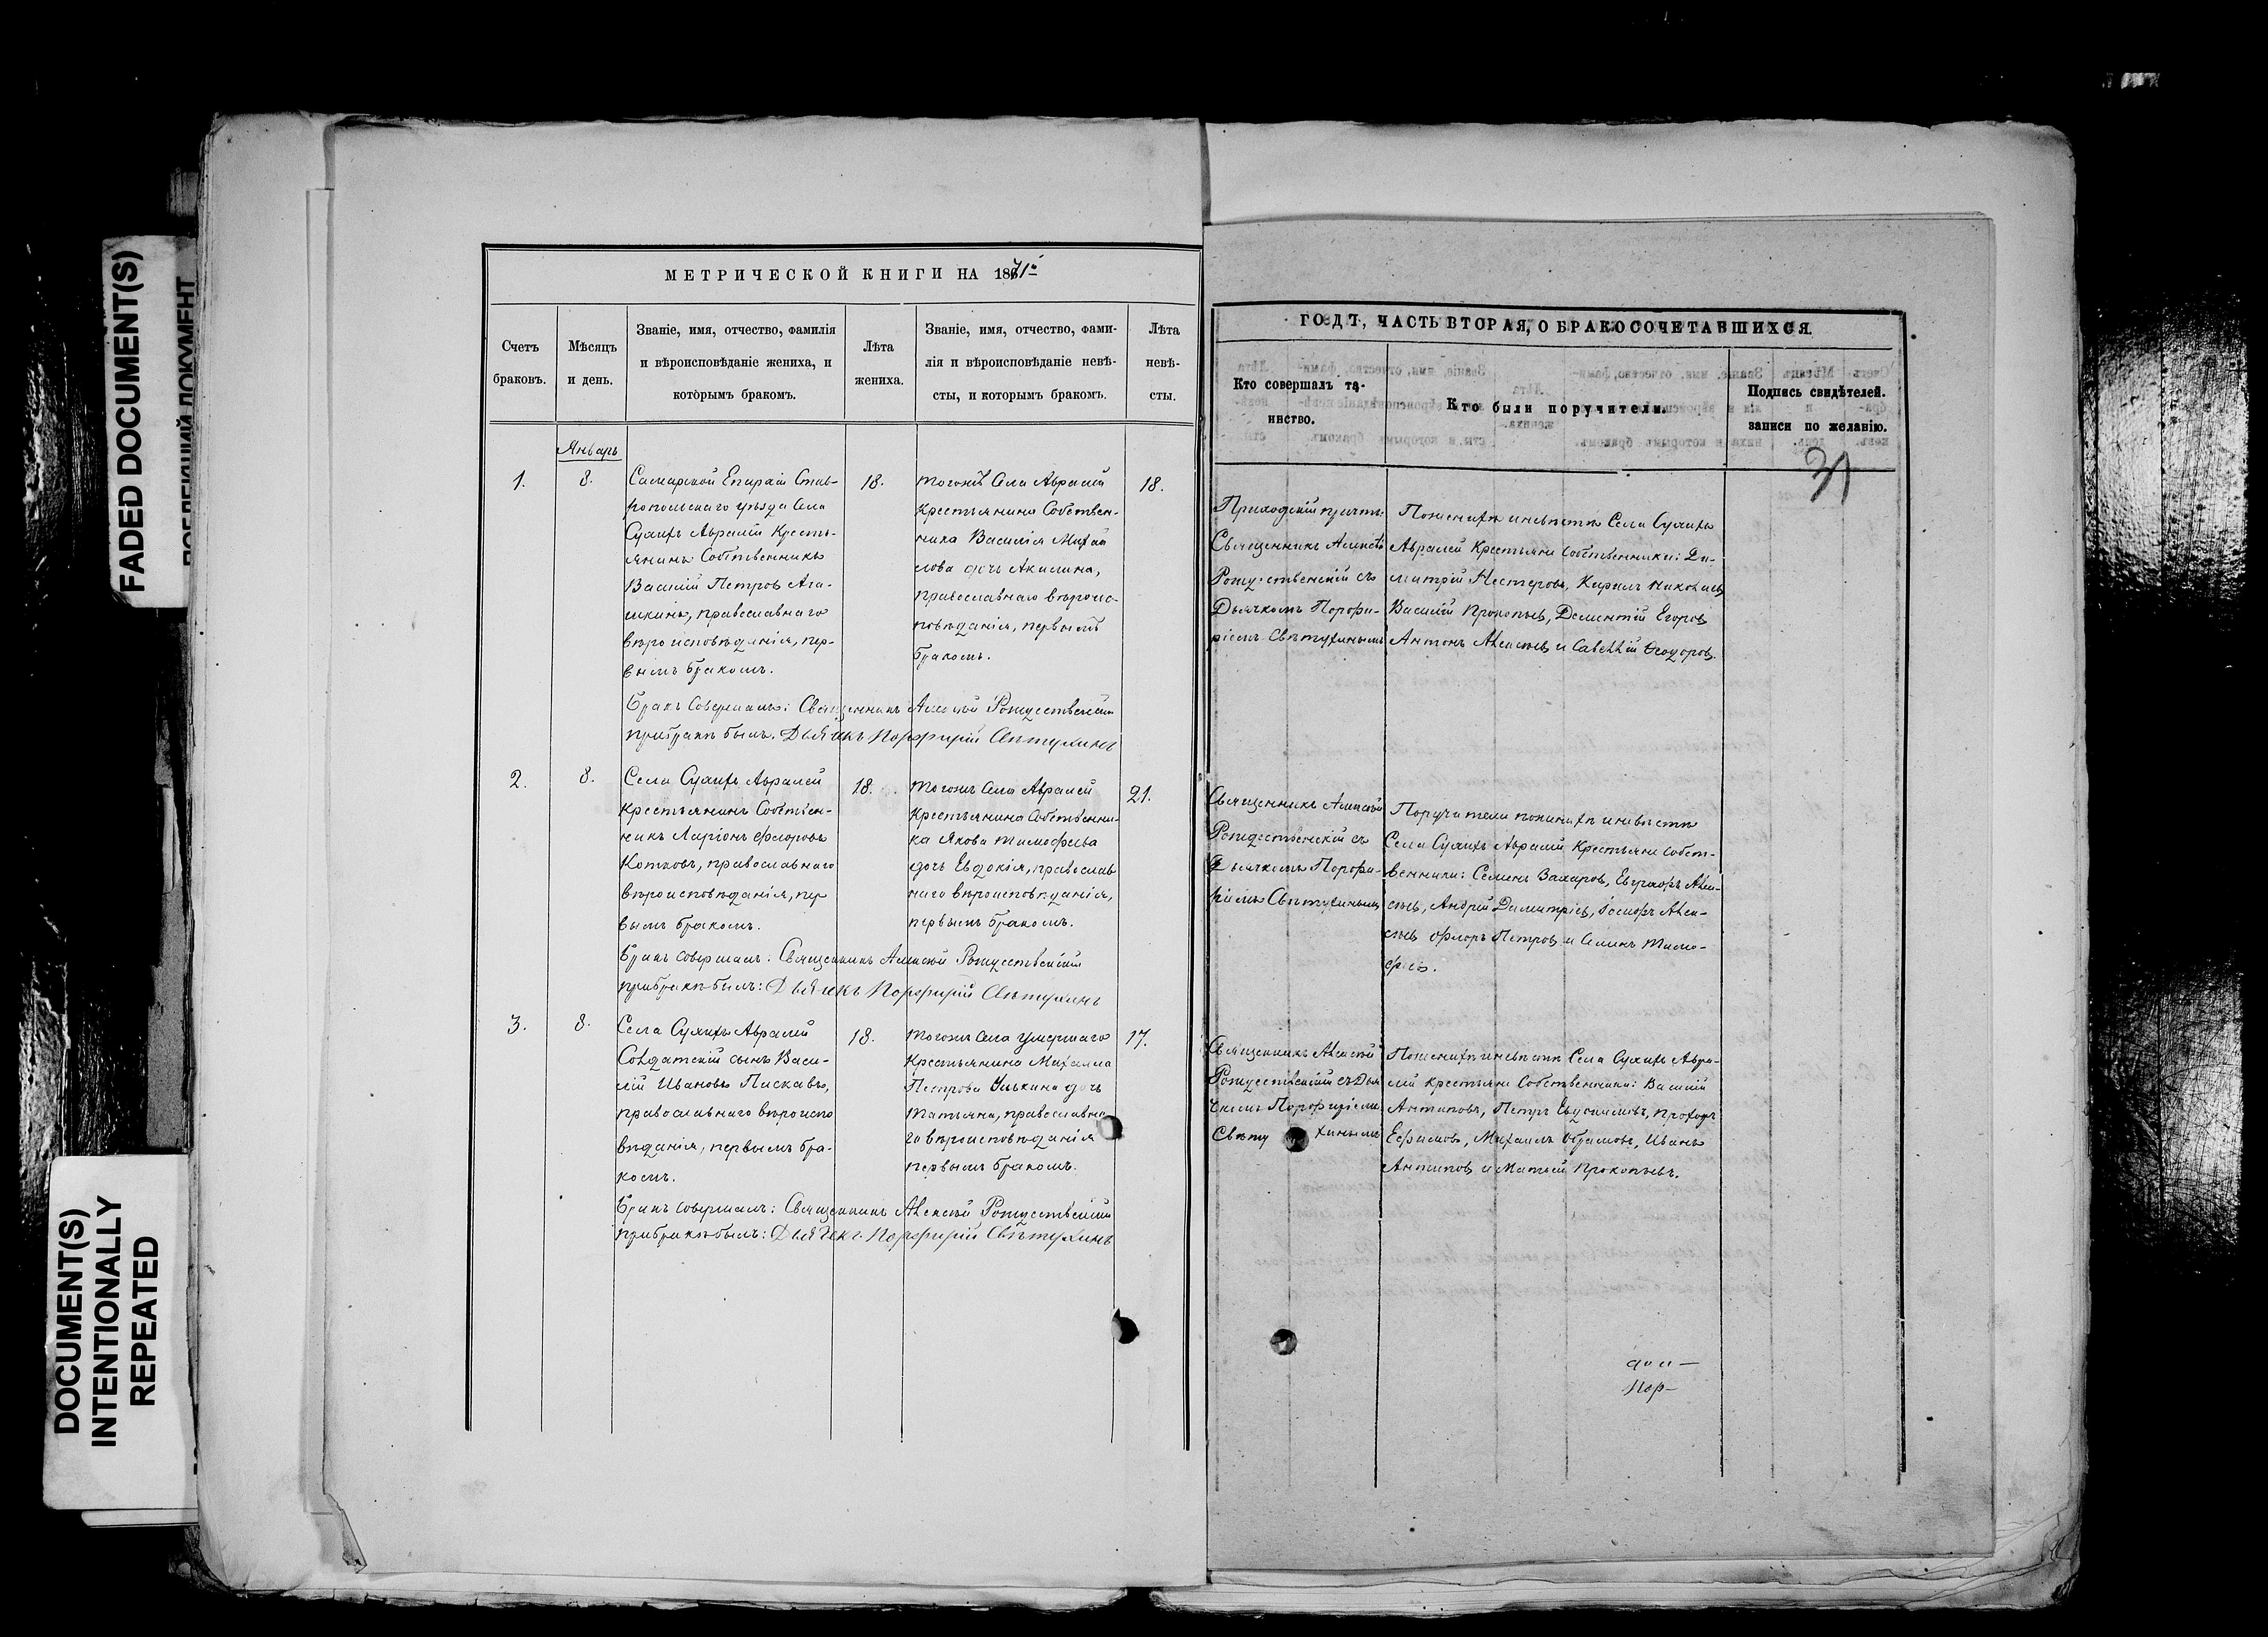 FADED DOCUMENT(S)
DOCUMENT(S)
INTENTIONALLY
REPEATED
МЕТРИЧЕСКОЙ КНИГИ НА 1871й
Счетъ
браковъ.
Мѣсяцъ
и день.
Званіе, имя, отчество, фамилія
и вѣроисповѣданіе жениха, и
которымъ бракомъ.
Лѣта
жениха.
Званіе, имя, отчество, фами-
лія и вѣроисповѣданіе невѣ-
сты, и которымъ бракомъ.
Лѣта
невѣ-
сты.
Январь
1.
8.
Самарской Епархіи Став-
ропольскаго уѣзда Села
Сухихъ Авралей Кресть-
янинъ Собственникъ
Василій Петровъ Ага-
шкинъ, православнаго
вѣроисповѣданія, пер-
вымъ бракомъ.
18.
тогожъ Села Авралей
Крестьянина Собствен-
ника Василія Михай
лова дочь Акилина,
православнаго вѣроис-
повѣданія, первымъ
бракомъ.
18.
Бракъ совершалъ: Священникъ Алексѣй Рождественскій
прибракѣ былъ: Дьячекъ Порфирій Свѣтухинъ
2.
8.
Села Сухихъ Авралей
Крестьянинъ Собствен-
никъ Ларіонъ Флоровъ
Котковъ, православнаго
вѣроисповѣданія, пер
вымъ бракомъ.
18.
тогожъ Села Авралей
Крестьянина Собственни-
ка Якова Тимофѣева
дочь Евдокія, православ
наго вѣроисповѣданія,
первымъ бракомъ.
21.
Бракъ совершалъ: Священникъ Алексѣй Рождественскій
прибракѣ былъ: Дьячекъ Порфирій Свѣтухинъ
3.
8.
Села Сухихъ Авралей
Солдатскій сынъ Васи-
лій Ивановъ Пискавъ,
православнаго вѣроиспо
вѣданія, первымъ бра-
комъ.
18.
тогожъ Села умершаго
Крестьянина Михаила
Петрова Улькина дочь
Татьяна, православна
го вѣроисповѣданія
первымъ бракомъ.
17.
Бракъ совершалъ: Священникъ Алексѣй Рождественскій
прибракѣ былъ: Дьячекъ Порфирій Свѣтухинъ
ГОДЪ, ЧАСТЬ ВТОРАЯ, О БРАКОСОЧЕТАВШИХСЯ.
Кто совершалъ та-
инство.
Кто были поручители.
Подпись свидѣтелей.
записи по желанію.
31
Приходскій причтъ:
Священникъ Алексѣй
Рождественскій съ
Дьячкомъ Порфи-
ріемъ Свѣтухинымъ
Пожениху иневѣстѣ Села Сухихъ
Авралей Крестьяне собственники: Ди-
митрій Нестеровъ, Кирилъ Николаевъ
Василій Прокопьевъ, Дементій Егоровъ
Антонъ Алексѣевъ и Савелій Ѳеодоровъ.
Священникъ Алексѣй
Рождественскій съ
Дьячкомъ Порфи-
ріемъ Свѣтухинымъ
Поручители пожениху иневѣстѣ
Села Сухихъ Авралей Крестьяне собст-
венники: Семенъ Захаровъ, Евграфъ Алек-
сѣевъ, Андрей Димитріевъ, Іосифъ Алек-
сѣевъ Флоръ Петровъ и Семенъ Тимо-
фѣевъ.
Священникъ Алексѣй
Рождественскій съ Дья
чкомъ Порфиріемъ
Свѣту хинымъ
Пожениху иневѣстѣ Села Сухихъ Авра-
лей Крестьяне Собственники: Василій
Антиповъ, Петръ Евдокимовъ, Прохоръ
Ефимовъ, Михаилъ Абрамовъ, Иванъ
Антиповъ и Матвей Прокопьевъ.